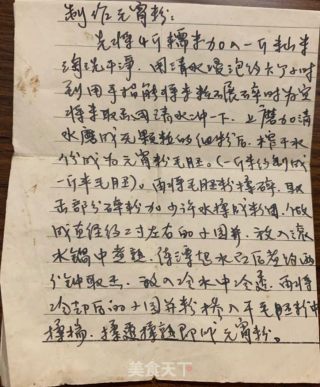 制作元宵粉:
先将4斤糯米加入一斤籼米
淘洗干净，用清水浸泡约六了小时
到用手指能将米粒碾碎时为宜
将米取出用清水冲一下，上磨加清
水磨成无颗粒的细粉后，榨干水
份成为元宵粉毛胚。(一斤米约制成
一斤半毛胚)。再将毛胚粉揉碎，取
出部分碎粉加少许水揉成粉团，做
成直径约二寸左右的小团并，放入滚
水锅中煮熟，待漂起水面后
分钟取出，放入冷水中冷透，再将
冷却后的小团并粉揉入干毛胚粉中
揉搞，揉透揉熟即成元宵粉。
美食天下